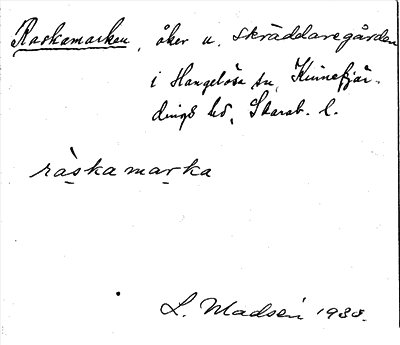 Raskamarken, åker u. Skräddaregården
i Hangelösa sn, Kinnefjär-
dings hd, Skarab. l.
ràskamarka
L. Madsén 1933.